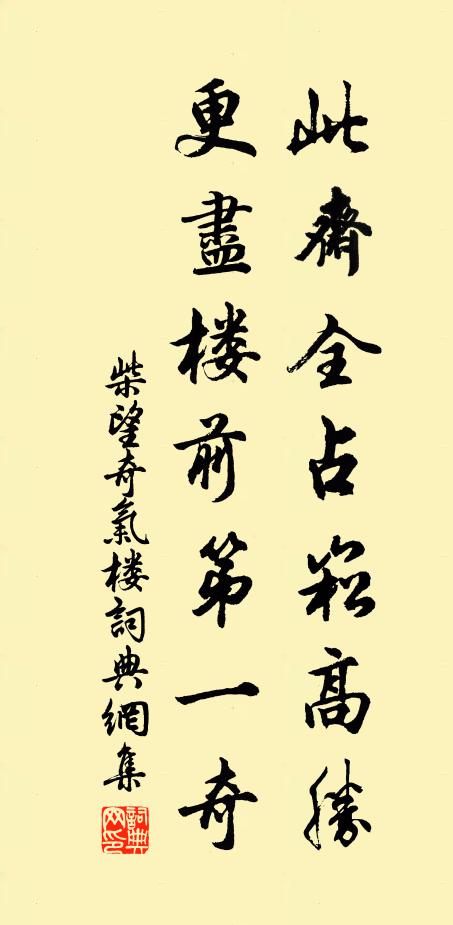 此齋全占崧高勝
更盡楼前第一奇
柴望奇氣楼詞典網集
詞典网印